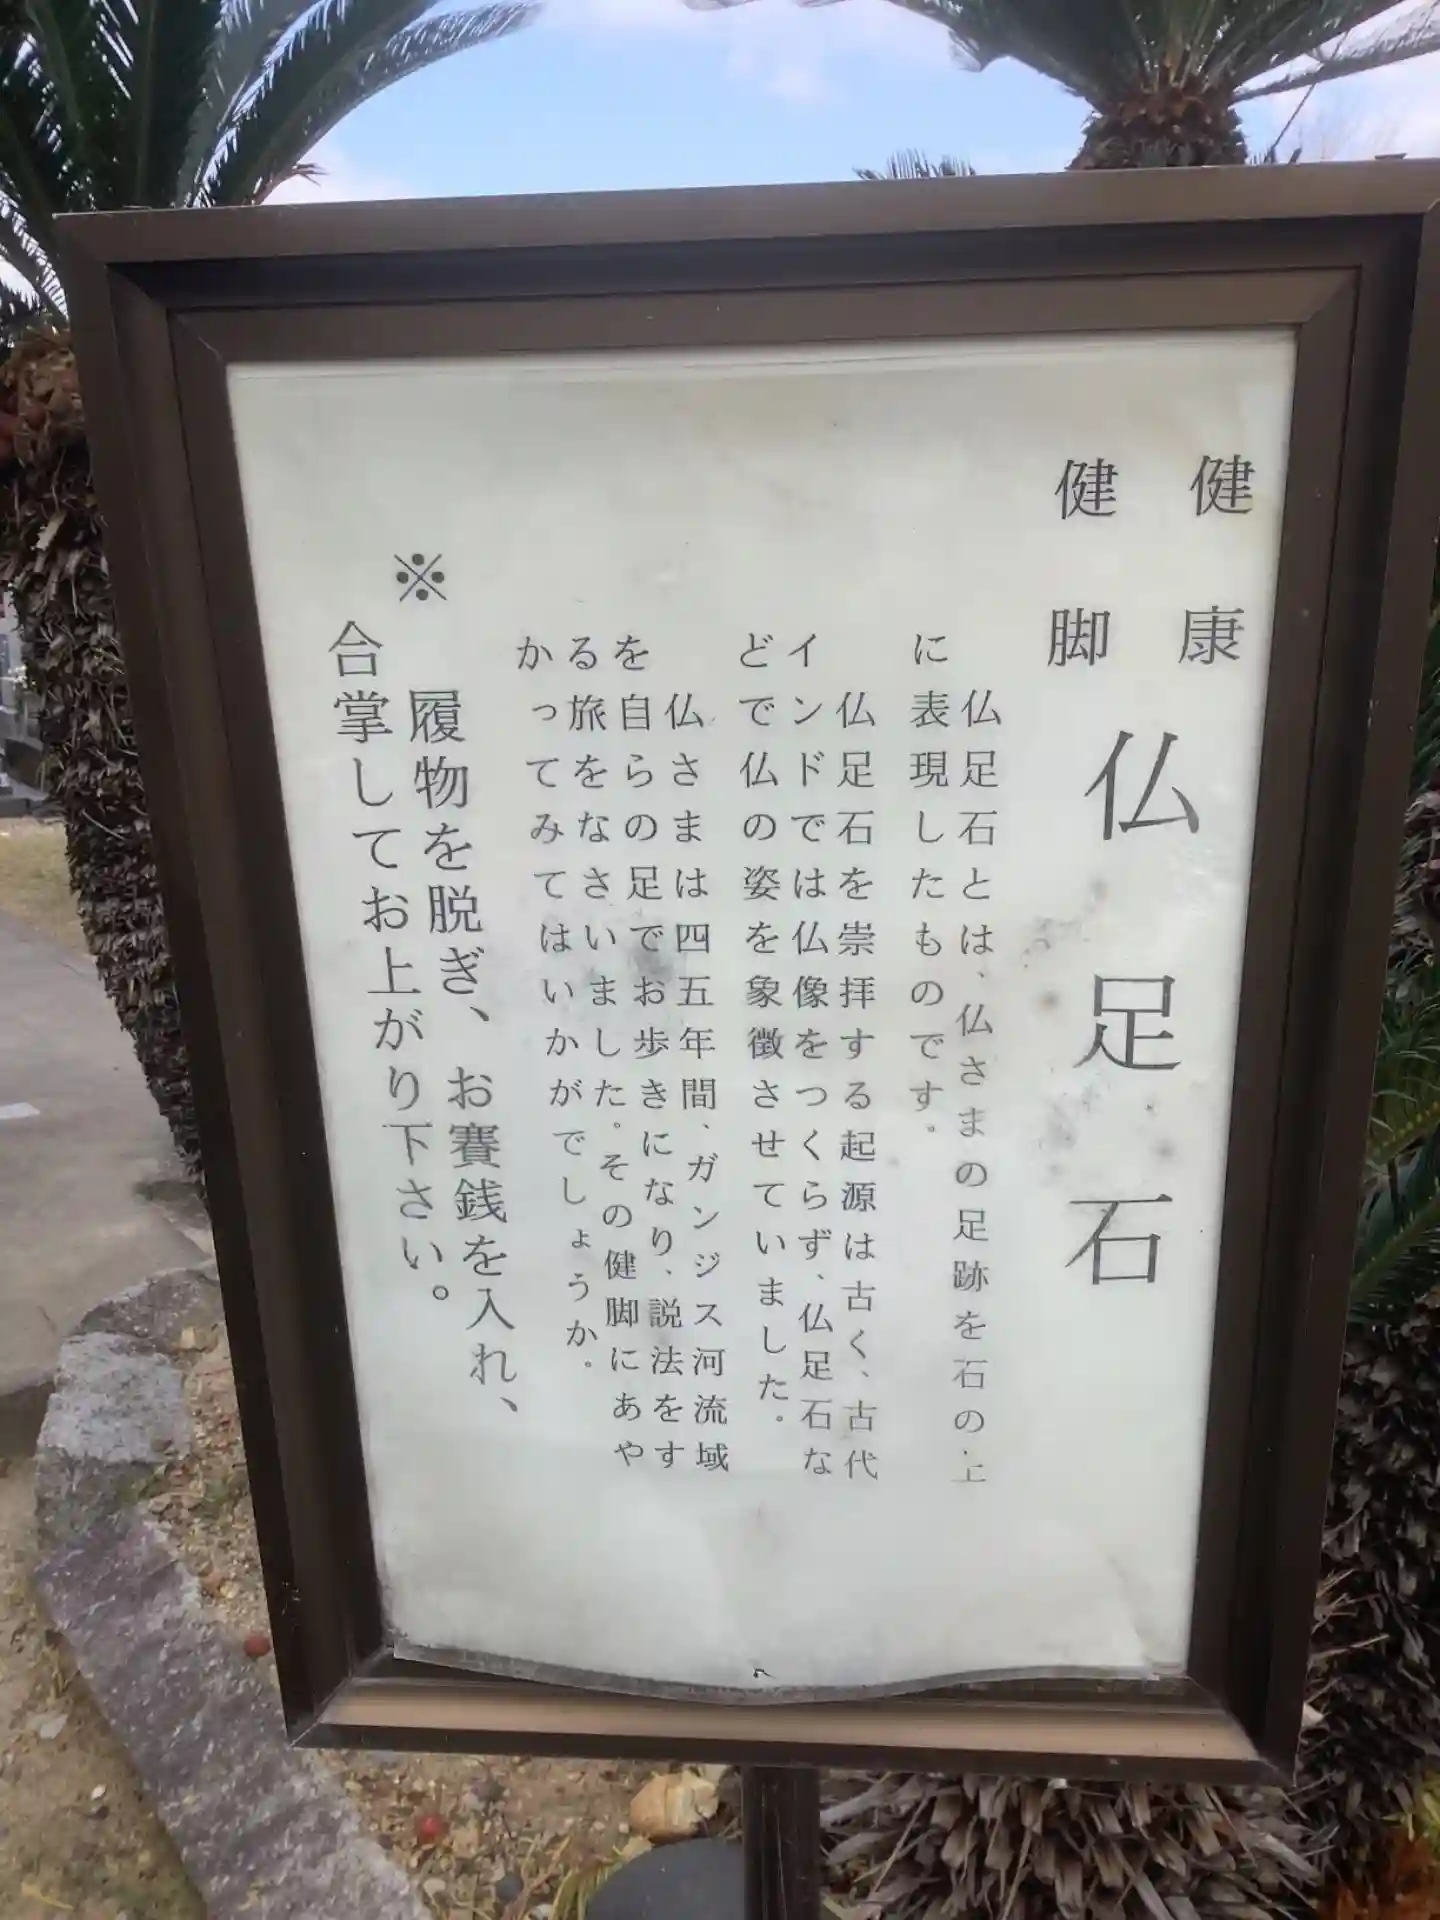 健康
健脚
仏足石
仏足石とは、仏さまの足跡を石の上
に表現したものです。
仏足石を崇拝する起源は古く、古代
インドでは仏像をつくらず、仏足石な
どで仏の姿を象徴させていました。
仏さまは四五年間、ガンジス河流域
を自らの足でお歩きになり、説法をす
る旅をなさいました。その健脚にあや
かってみてはいかがでしょうか。
※履物を脱ぎ、お賽銭を入れ、
合掌してお上がり下さい。